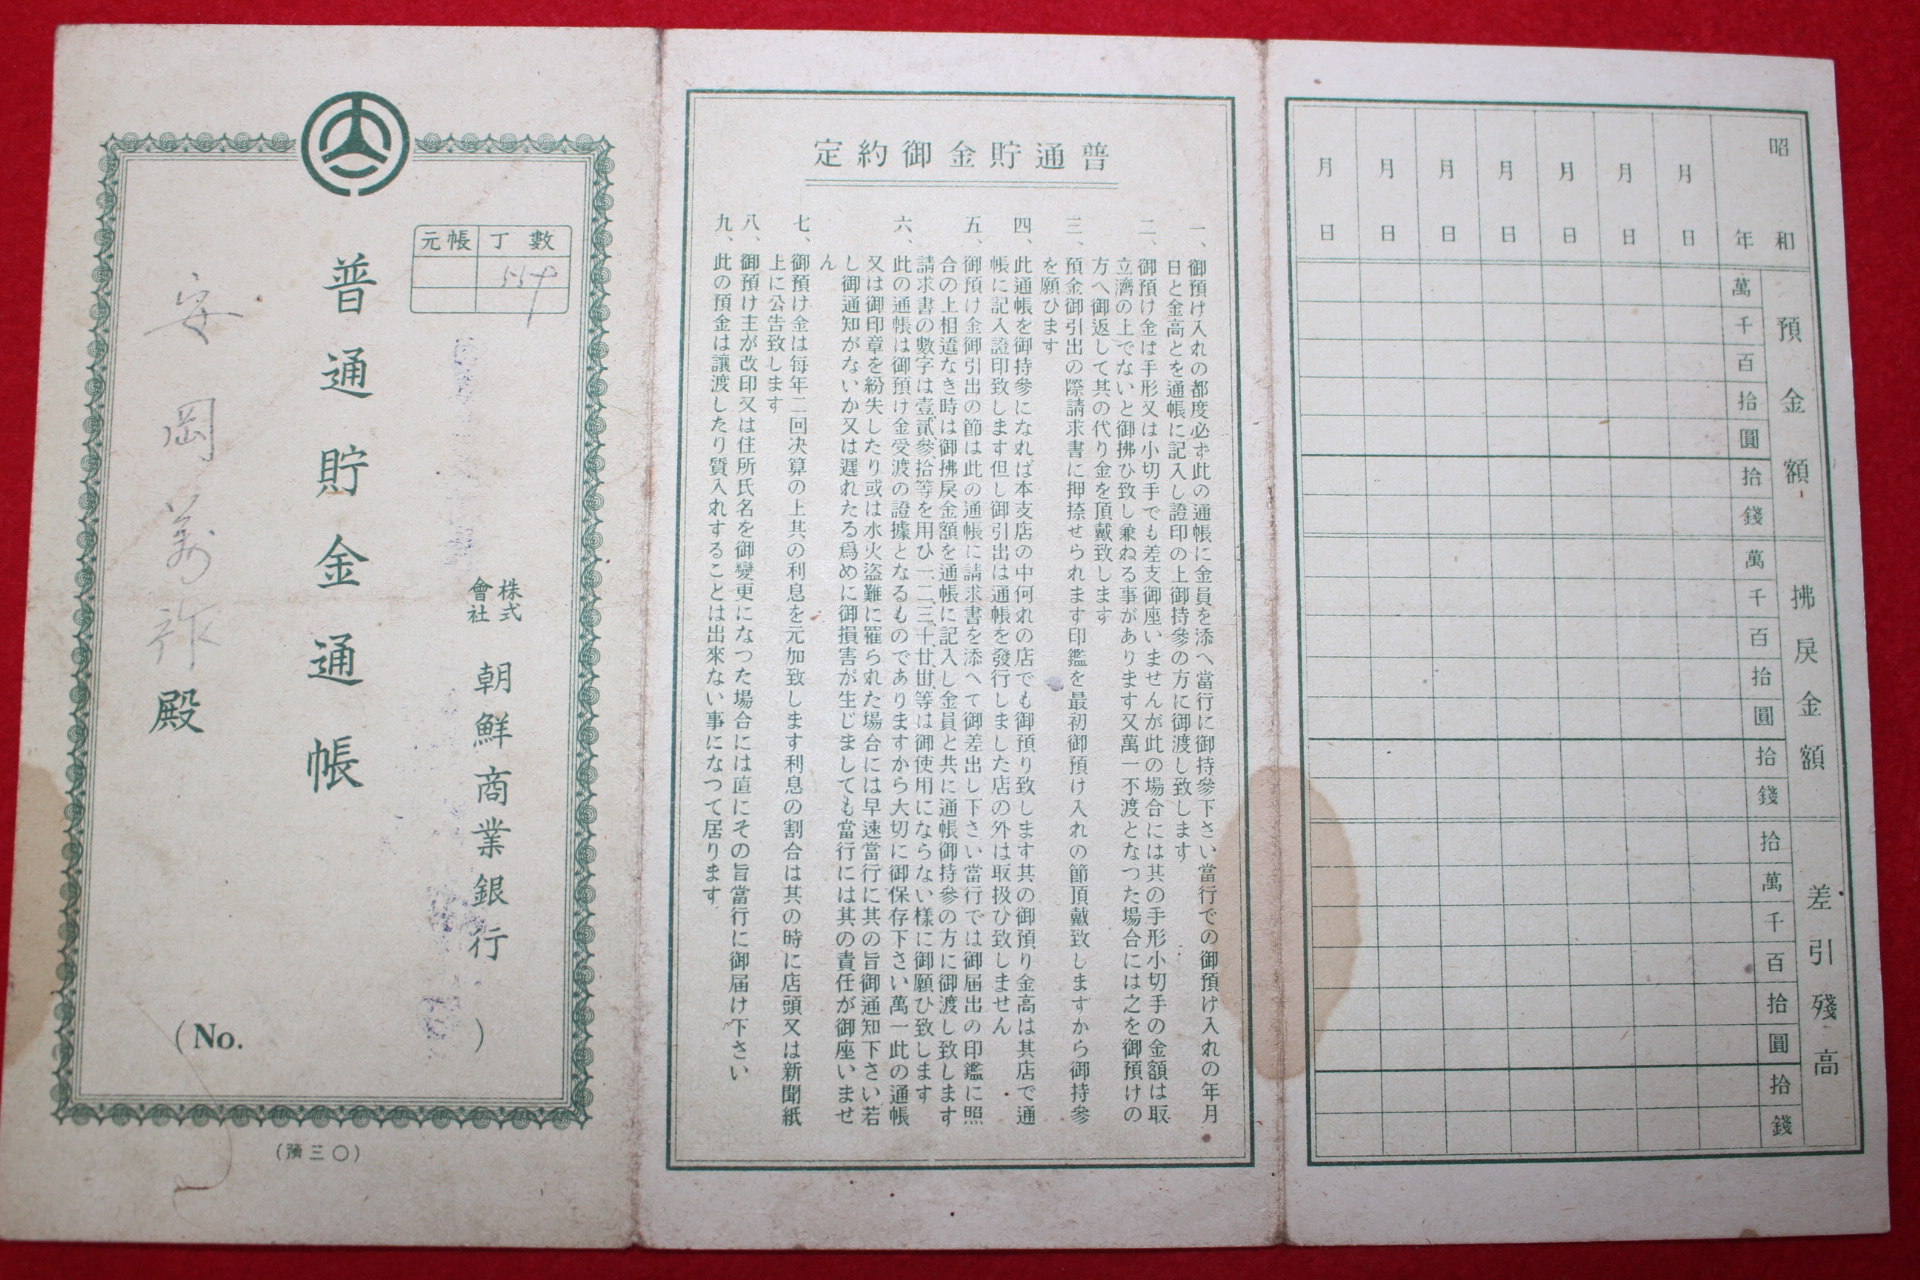 元帳 丁數
554
株式會社 朝鮮商業銀行
普通貯金通帳
安岡 殿
(No. )
(預三〇)
普通貯金御約定
一、御預け入れの都度必ず此の通帳に金員を添へ當行に御持參下さい當行での御預け入れの年月
日と金高とを通帳に記入し證印の上御持參の方に御渡し致します
二、御預け金は手形又は小切手でも差支御座いませんが此の場合には其の手形小切手の金額は取
立濟の上でないと御拂ひ致し兼ねる事があります又萬一不渡となつた場合には之を御預けの
方へ御返して其の代り金を頂戴致します
三、預金御引出の際請求書に押捺せられます印鑑を最初御預け入れの節頂戴致しますから御持參
を願ひます
四、此通帳を御持參になれば本支店の中何れの店でも御預り致します其の御預り金高は其店で通
帳に記入證印致します但し御引出は通帳を發行しました店の外は取扱ひ致しません
五、御預け金御引出の節は此の通帳に請求書を添へて御差出し下さい當行では御届出の印鑑に照
合の上相違なき時は御拂戻金額を通帳に記入し金員と共に通帳御持參の方に御渡し致します
請求書の數字は壹貳參拾等を用ひ一二三、十、廿、丗等は御使用にならない樣に御願ひ致します
六、此の通帳は御預け金受渡の證據となるものでありますから大切に御保存下さい萬一此の通帳
又は御印章を紛失したり或は水火盜難に罹られた場合には早速當行に其の旨御通知下さい若
し御通知がないか又は遲れたる爲めに御損害が生じましても當行には其の責任が御座いませ
ん
七、御預け金は每年二回決算の上其の利息を元加致します利息の割合は其の時に店頭又は新聞紙
上に公告致します
八、御預け主が改印又は住所氏名を御變更になつた場合には直にその旨當行に御届け下さい
九、此の預金は讓渡したり質入れすることは出來ない事になつて居ります
昭和 年
月 日
月 日
月 日
月 日
月 日
月 日
月 日
預金額
萬 千 百 拾 圓 拾 錢
拂戻金額
萬 千 百 拾 圓 拾 錢
差引殘高
拾 萬 千 百 拾 圓 拾 錢